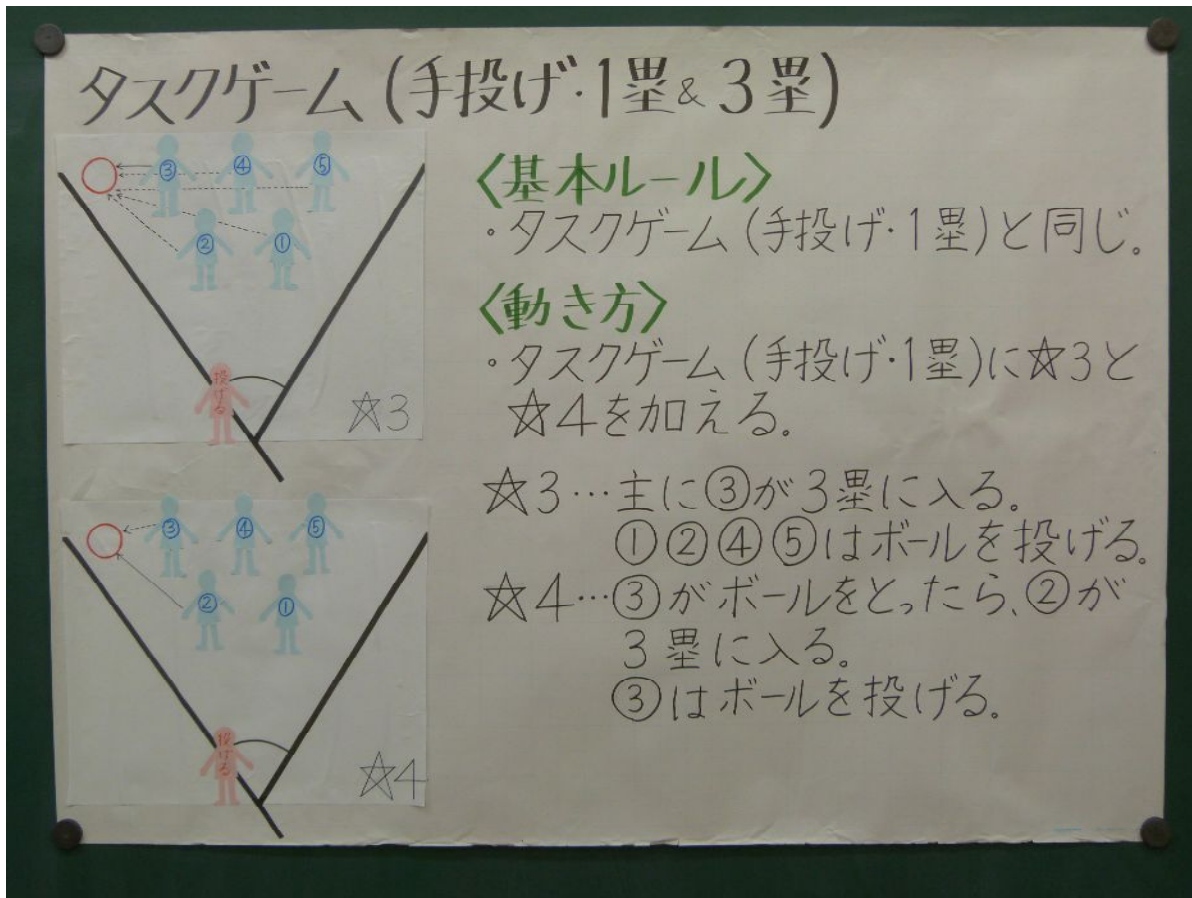 タスクゲーム(手投げ・1塁&3塁)
③
④
⑤
②
①
投げる
☆3
③
④
⑤
②
①
投げる
☆4
〈基本ルール〉
・タスクゲーム(手投げ・1塁)と同じ。
〈動き方〉
・タスクゲーム(手投げ・1塁)に☆3と
☆4を加える。
☆3…主に③が3塁に入る。
①②④⑤はボールを投げる。
☆4…③がボールをとったら、②が
3塁に入る。
③はボールを投げる。